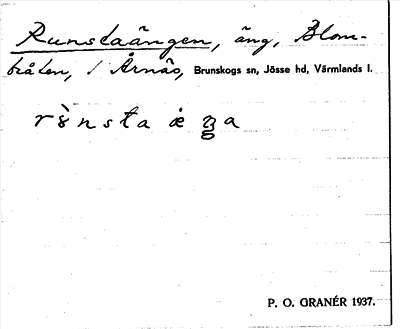 Runstaängen, äng, Blom-
bråten, 1 Årnäs, Brunskogs sn, Jösse hd, Värmlands l.
P. O. GRANÉR 1937.